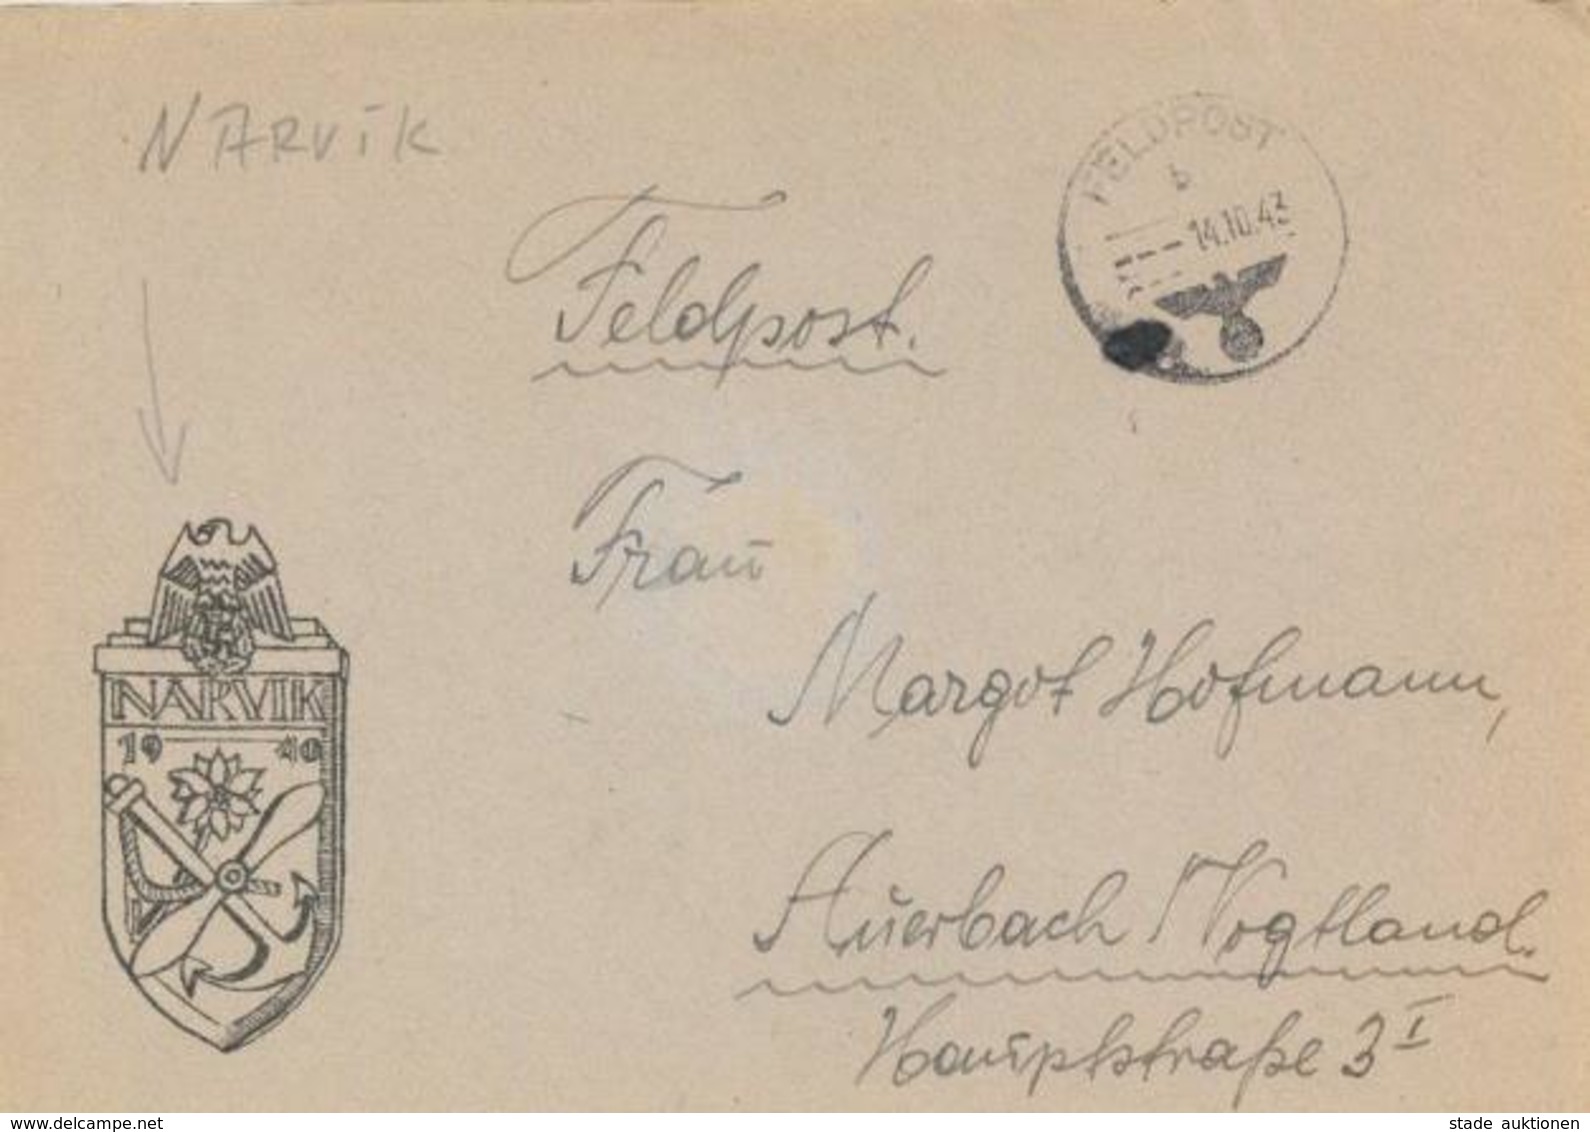 NARVIK
FELDPOST
b
14.10.43
Feldpost.
Frau
Margot Hofmann,
Auerbach /Vogtland.
Hauptstraße 3 I
NARVIK
19 40
www.delcampe.net
stade auktionen